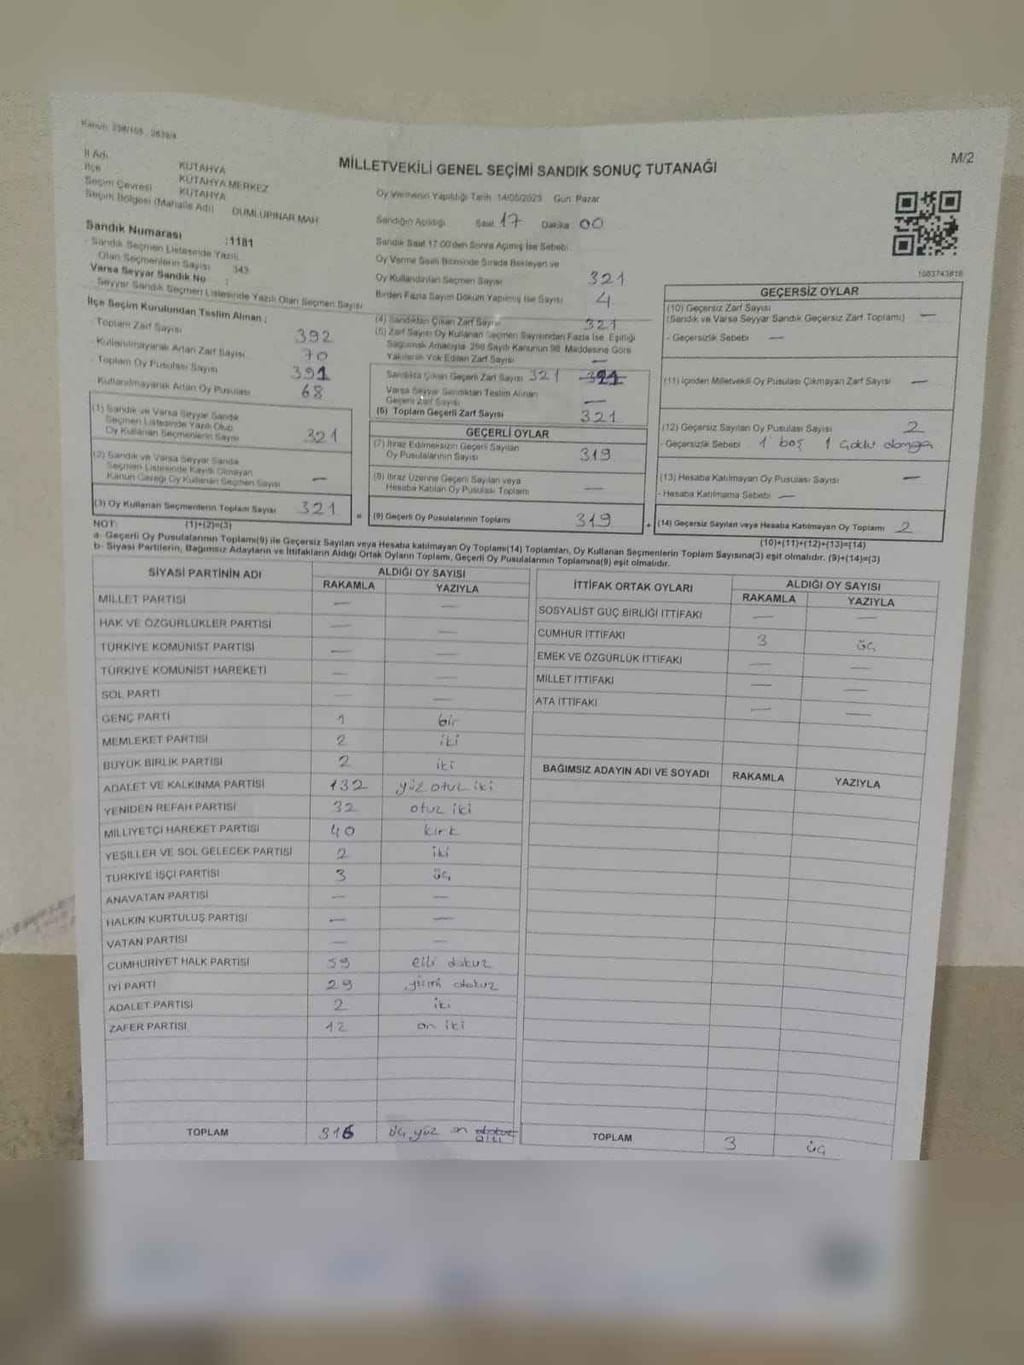 Kanun: 298/105 - 2839/4
M/2
MİLLETVEKİLİ GENEL SEÇİMİ SANDIK SONUÇ TUTANAĞI
İl Adı KÜTAHYA
İlçe KÜTAHYA MERKEZ
Seçim Çevresi KÜTAHYA
Seçim Bölgesi (Mahalle Adı) DUMLUPINAR MAH
Sandık Numarası :1181
- Sandık Seçmen Listesinde Yazılı
Olan Seçmenlerin Sayısı 343
Varsa Seyyar Sandık No :
Seyyar Sandık Seçmen Listesinde Yazılı Olan Seçmen Sayısı
İlçe Seçim Kurulundan Teslim Alınan ;
- Toplam Zarf Sayısı 392
- Kullanılmayarak Artan Zarf Sayısı 70
- Toplam Oy Pusulası Sayısı 391
- Kullanılmayarak Artan Oy Pusulası 68
(1) Sandık ve Varsa Seyyar Sandık
Seçmen Listesinde Yazılı Olup
Oy Kullanan Seçmenlerin Sayısı 321
(2) Sandık ve Varsa Seyyar Sandık
Seçmen Listesinde Kayıtlı Olmayan
Kanun Gereği Oy Kullanan Seçmen Sayısı —
(3) Oy Kullanan Seçmenlerin Toplam Sayısı 321
Oy Vermenin Yapıldığı Tarih 14/05/2023 Gün: Pazar
Sandığın Açıldığı Saat 17 Dakika 00
Sandık Saat 17:00'den Sonra Açılmış İse Sebebi
Oy Verme Saati Bitiminde Sırada Bekleyen ve
Oy Kullandırılan Seçmen Sayısı 321
Birden Fazla Sayım Döküm Yapılmış İse Sayısı 4
(4) Sandıktan Çıkan Zarf Sayısı 321
(5) Zarf Sayısı Oy Kullanan Seçmen Sayısından Fazla İse, Eşitliği
Sağlamak Amacıyla 298 Sayılı Kanunun 98. Maddesine Göre
Yakılarak Yok Edilen Zarf Sayısı —
Sandıkta Çıkan Geçerli Zarf Sayısı 321
Varsa Seyyar Sandıktan Teslim Alınan
Geçerli Zarf Sayısı —
(6) Toplam Geçerli Zarf Sayısı 321
GEÇERLİ OYLAR
(7) İtiraz Edilmeksizin Geçerli Sayılan
Oy Pusulalarının Sayısı 319
(8) İtiraz Üzerine Geçerli Sayılan veya
Hesaba Katılan Oy Pusulası Toplamı —
= (9) Geçerli Oy Pusulalarının Toplamı 319
1083743816
GEÇERSİZ OYLAR
(10) Geçersiz Zarf Sayısı
(Sandık ve Varsa Seyyar Sandık Geçersiz Zarf Toplamı) —
- Geçersizlik Sebebi —
(11) İçinden Milletvekili Oy Pusulası Çıkmayan Zarf Sayısı —
(12) Geçersiz Sayılan Oy Pusulası Sayısı 2
- Geçersizlik Sebebi 1 boş 1 çoklu damga
(13) Hesaba Katılmayan Oy Pusulası Sayısı —
- Hesaba Katılmama Sebebi —
+ (14) Geçersiz Sayılan veya Hesaba Katılmayan Oy Toplamı 2
NOT: (1)+(2)=(3) (10)+(11)+(12)+(13)=(14)
a- Geçerli Oy Pusulalarının Toplamı(9) ile Geçersiz Sayılan veya Hesaba katılmayan Oy Toplamı(14) Toplamları, Oy Kullanan Seçmenlerin Toplam Sayısına(3) eşit olmalıdır. (9)+(14)=(3)
b- Siyasi Partilerin, Bağımsız Adayların ve İttifakların Aldığı Ortak Oyların Toplamı, Geçerli Oy Pusulalarının Toplamına(9) eşit olmalıdır.
SİYASİ PARTİNİN ADI ALDIĞI OY SAYISI
RAKAMLA YAZIYLA
MİLLET PARTİSİ — —
HAK VE ÖZGÜRLÜKLER PARTİSİ — —
TÜRKİYE KOMÜNİST PARTİSİ — —
TÜRKİYE KOMÜNİST HAREKETİ — —
SOL PARTİ — —
GENÇ PARTİ 1 bir
MEMLEKET PARTİSİ 2 iki
BÜYÜK BİRLİK PARTİSİ 2 iki
ADALET VE KALKINMA PARTİSİ 132 yüz otuz iki
YENİDEN REFAH PARTİSİ 32 otuz iki
MİLLİYETÇİ HAREKET PARTİSİ 40 kırk
YEŞİLLER VE SOL GELECEK PARTİSİ 2 iki
TÜRKİYE İŞÇİ PARTİSİ 3 üç
ANAVATAN PARTİSİ — —
HALKIN KURTULUŞ PARTİSİ — —
VATAN PARTİSİ — —
CUMHURİYET HALK PARTİSİ 59 elli dokuz
İYİ PARTİ 29 yirmi dokuz
ADALET PARTİSİ 2 iki
ZAFER PARTİSİ 12 on iki
TOPLAM 316 üç yüz on altı
İTTİFAK ORTAK OYLARI ALDIĞI OY SAYISI
RAKAMLA YAZIYLA
SOSYALİST GÜÇ BİRLİĞİ İTTİFAKI — —
CUMHUR İTTİFAKI 3 üç
EMEK VE ÖZGÜRLÜK İTTİFAKI — —
MİLLET İTTİFAKI — —
ATA İTTİFAKI — —
BAĞIMSIZ ADAYIN ADI VE SOYADI RAKAMLA YAZIYLA
TOPLAM 3 üç